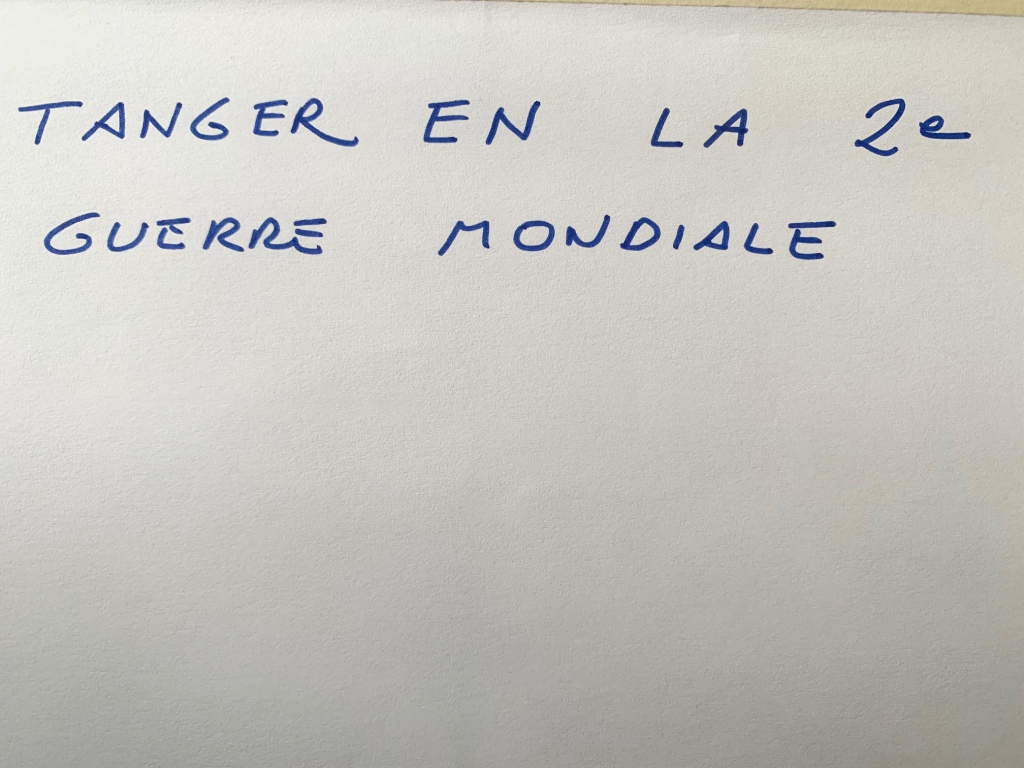 TANGER EN LA 2e
GUERRE MONDIALE